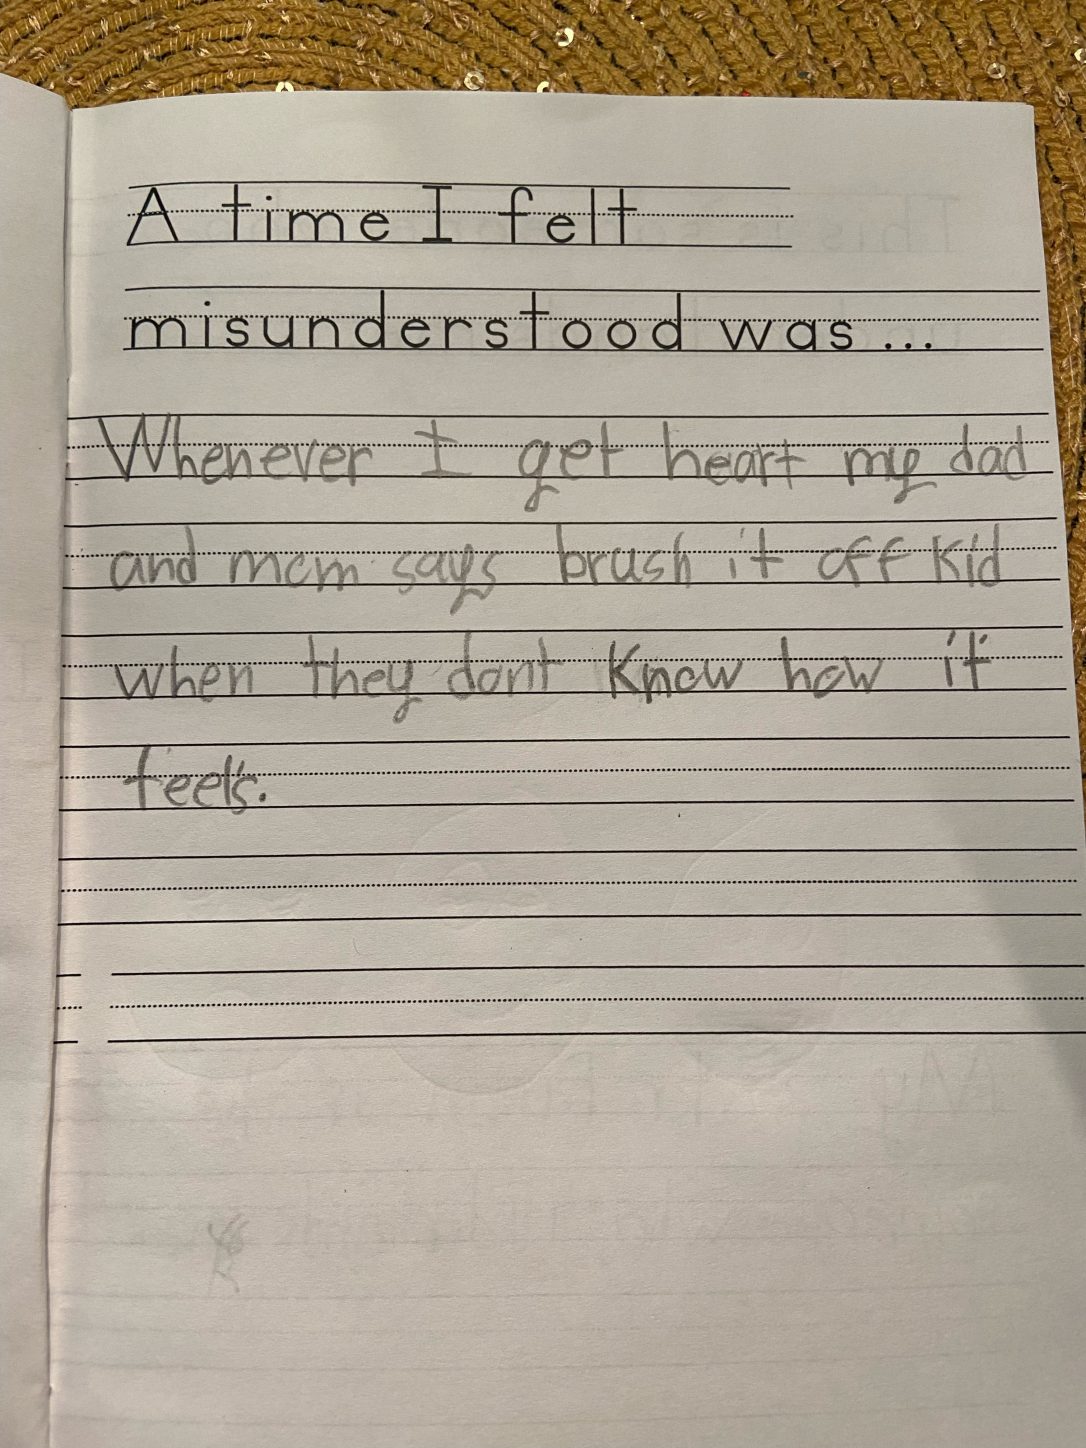 A time I felt
misunderstood was...
Whenever I get heart my dad
and mom says brush it off kid
when they dont know how it
feels.